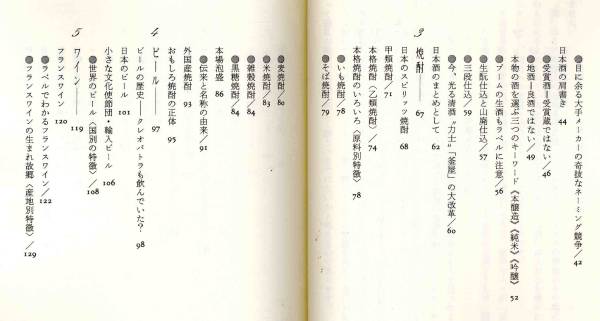 ●目に余る大手メーカーの奇抜なネーミング競争/42
日本酒の肩書き 44
●受賞酒=受賞蔵ではない/46
●地酒=良酒ではない/49
本物の酒を選ぶ三つのキーワード《本醸造》《純米》《吟醸》 52
●ブームの生酒もラベルに注意/56
●生酛仕込と山廃仕込/57
●三段仕込/59
●今、光る清酒“力士”「釜屋」の大改革/60
日本酒のまとめとして 62
3 焼酎――67
日本のスピリッツ焼酎 68
甲類焼酎/71
本格焼酎〈乙類焼酎〉/74
本格焼酎のいろいろ〈原料別特徴〉 78
●いも焼酎/78
●そば焼酎/79
●麦焼酎/80
●米焼酎/83
●雑穀焼酎/84
●黒糖焼酎/84
本場泡盛 86
●伝来と名称の由来/91
外国産焼酎 93
おもしろ焼酎の正体 95
4 ビール――97
ビールの歴史――クレオパトラも飲んでいた? 98
日本のビール 101
小さな文化使節団・輸入ビール 106
●世界のビール〈国別の特徴〉/108
5 ワイン――119
フランスワイン 120
●ラベルでわかるフランスワイン/122
●フランスワインの生まれ故郷〈産地別特徴〉/129